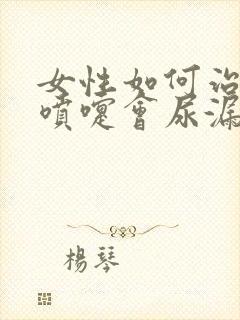 女性如何治
噴嚏會尿漏
楊琴